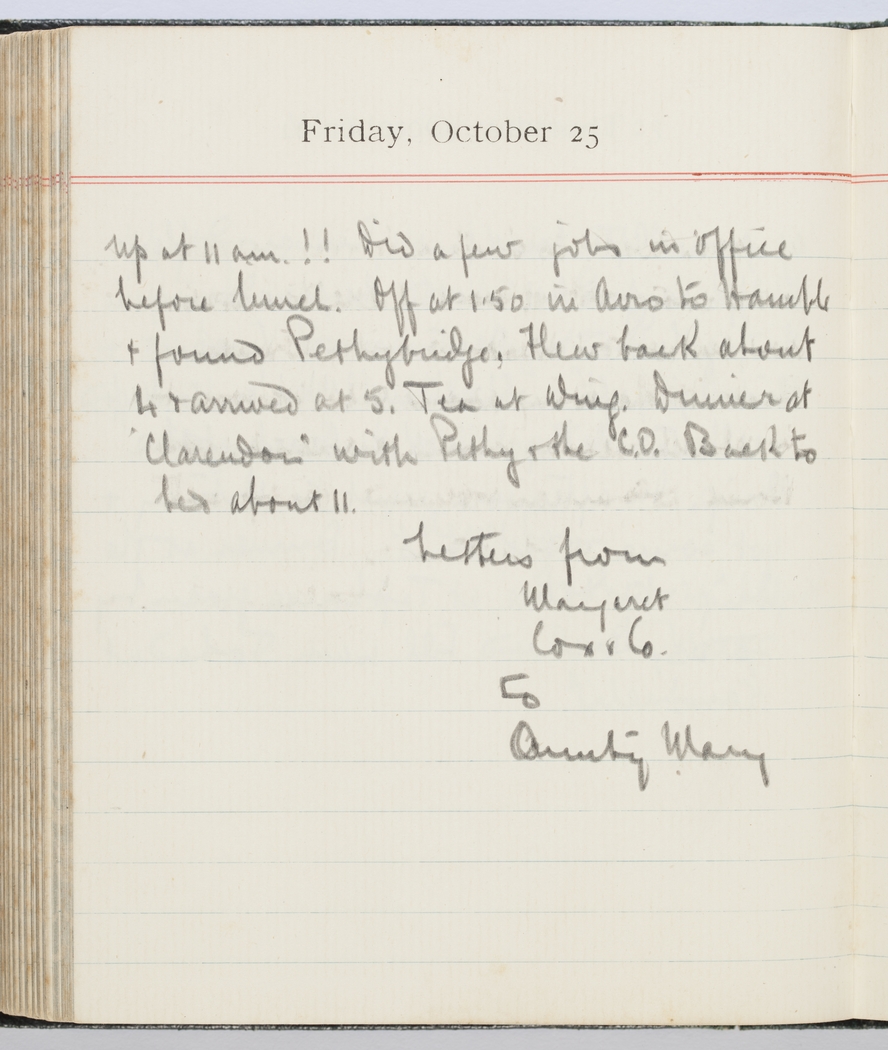 Friday, October 25
Up at 11 am. !! Did a few jobs in office
before lunch. Off at 1.50 in Avro to Hamble
+ found Pethybridge, Flew back about
4 + arrived at 5. Tea at Wing. Dinner at
"Clarendon" with Pethy + the C.O. Back to
bed about 11.
Letters from
Margaret
Cox & Co.
To
Aunty Mary